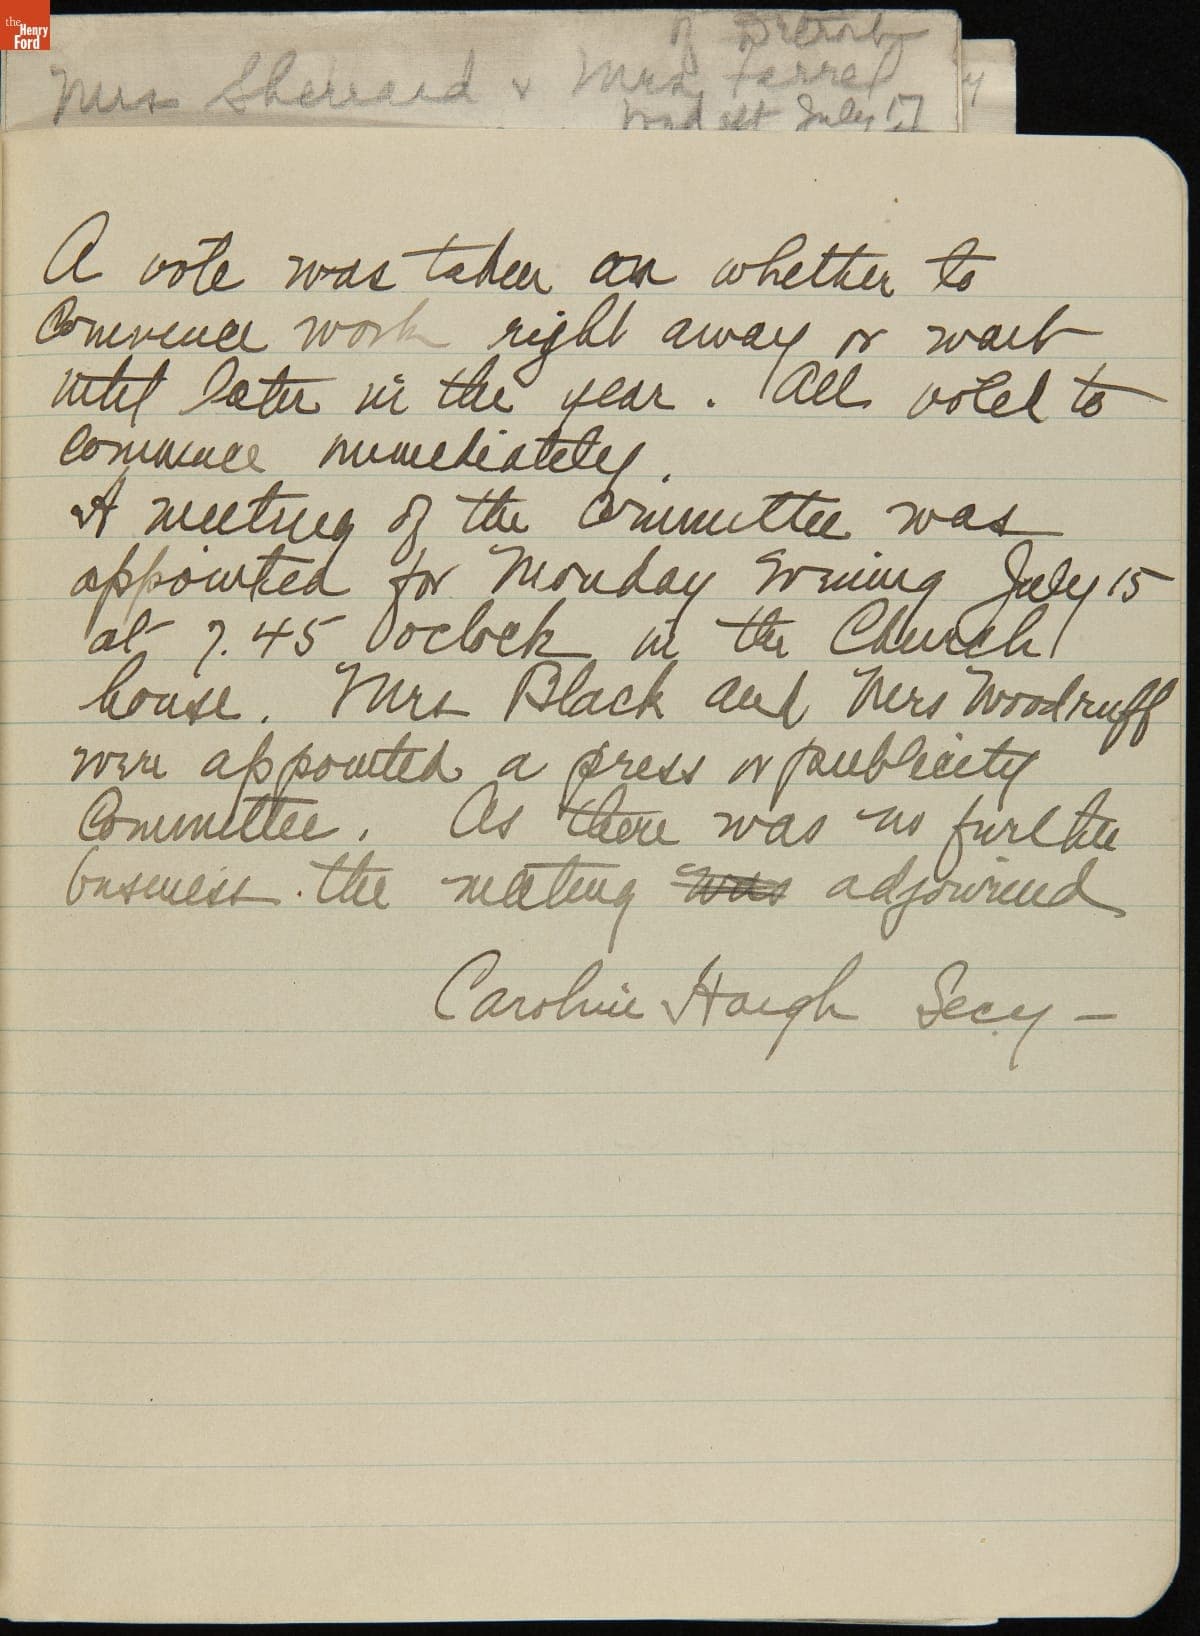 the Henry Ford
of Detroit
Mrs Sherrard & Mrs Farrel
Wed aft July 17
y
A vote was taken on whether to
Commence work right away or wait
until later in the year. All voted to
commence immediately.
A meeting of the Committee was
appointed for Monday Evening July 15
at 7.45 oclock in the Church
house. Mrs Black and Mrs Woodruff
were appointed a press or publicity
Committee. As there was no further
business the meeting was adjourned
Caroline Haugh Secy –